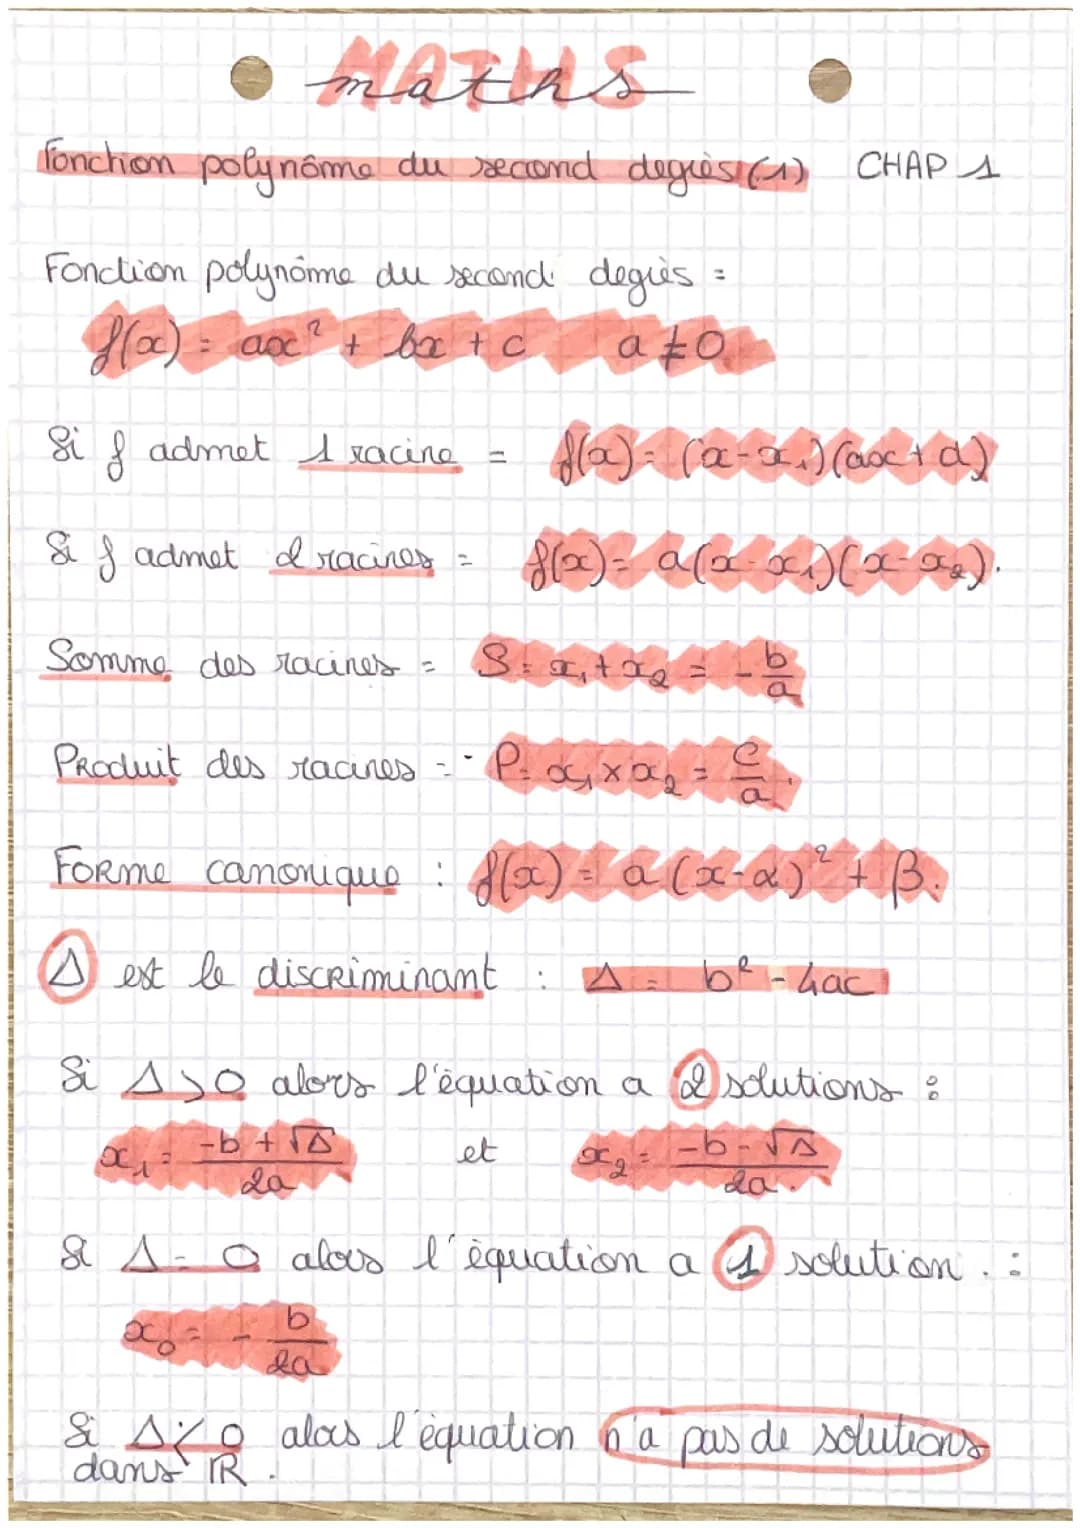 MATHS
maths
Fonction polynôme du second degrès (1) CHAP 1
Fonction polynôme du second degrès =
f(x) = ax² + bx + c a ≠ 0
Si f admet 1 racine = f(x) = (x-x₁)(ax+d)
Si f admet 2 racines = f(x) = a(x-x₁)(x-x₂).
Somme des racines = S = x₁+x₂ = -b/a
Produit des racines = P = x₁ × x₂ = c/a.
Forme canonique : f(x) = a(x-α)² + β.
Δ est le discriminant : Δ = b² - 4ac
Si Δ > 0 alors l'équation a 2 solutions :
x₁ = (-b + √Δ)/2a et x₂ = (-b - √Δ)/2a.
Si Δ = 0 alors l'équation a 1 solution. :
x₀ = - b/2a
Si Δ < 0 alors l'équation n'a pas de solutions
dans ℝ.